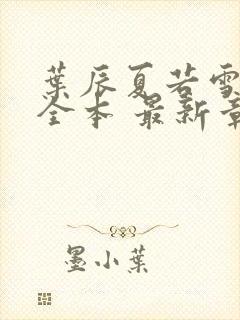 葉辰夏若雪
全本 最新章
墨小葉